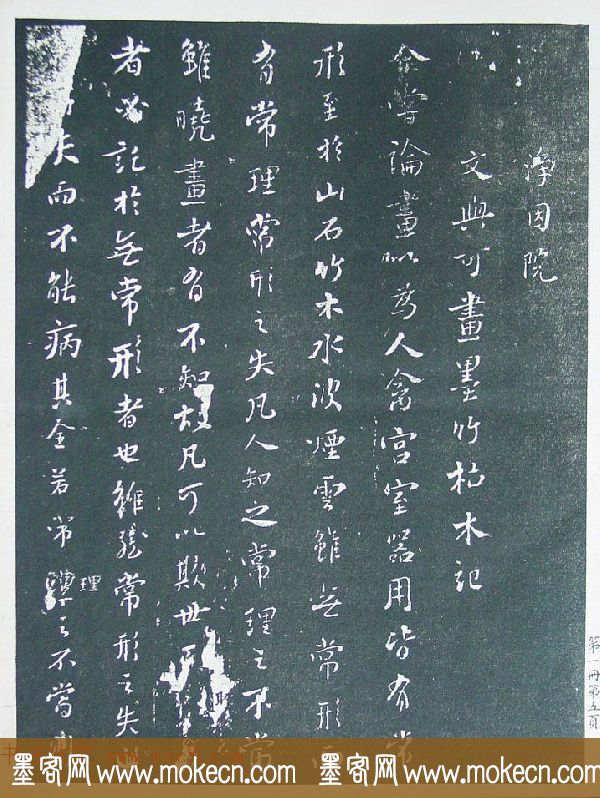 淨因院
文與可畫墨竹枯木記
余嘗論畫以為人禽宮室器用皆有常
形至於山石竹木水波煙雲雖無常形而
有常理常形之失凡人知之常理之不當
雖曉畫者有不知故凡可以欺世
者必託於無常形者也雖然常形之失
失而不能病其全若常理之不當
第一冊第五頁
墨客网 www.mokecn.com 墨客网 www.mokecn.com